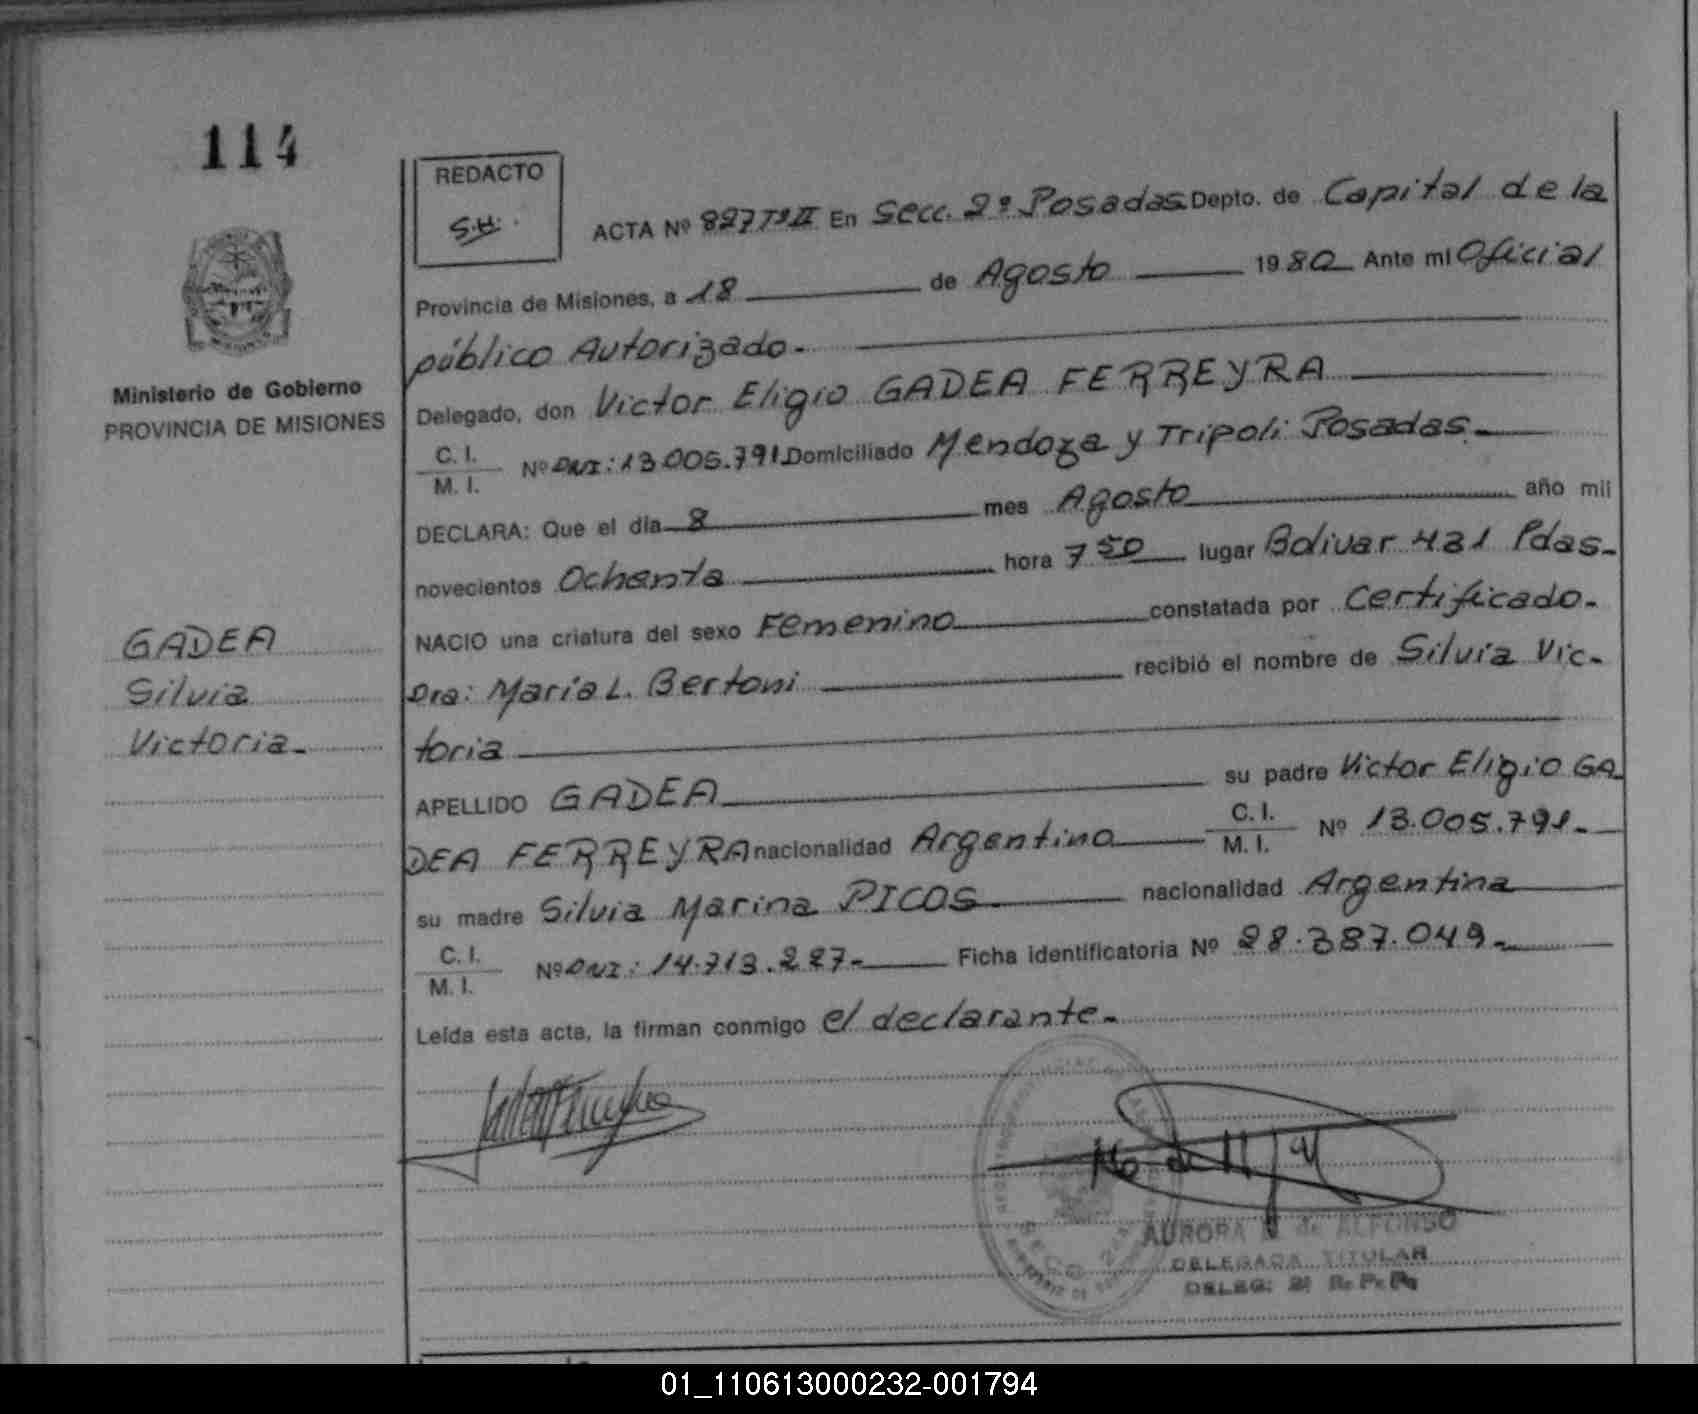 114
REDACTO
S.H.
ACTA Nº 827 Tº II En Secc. 2º Posadas Depto. de Capital de la
Provincia de Misiones, a 18 de Agosto 1980 Ante mi Oficial
público Autorizado.
Ministerio de Gobierno
PROVINCIA DE MISIONES
Delegado, don Victor Eligio GADEA FERREYRA
C. I.
M. I.
Nº DNI: 13.005.791 Domiciliado Mendoza y Tripoli Posadas.
DECLARA: Que el día 8 mes Agosto año mil
novecientos Ochenta hora 7 50 lugar Bolivar 431 Pdas.
NACIO una criatura del sexo Femenino constatada por Certificado.
GADEA
Silvia
Victoria.
Dra: María L. Bertoni recibió el nombre de Silvia Vic-
toria
APELLIDO GADEA su padre Victor Eligio GA
DEA FERREYRA nacionalidad Argentino C. I. M. I. Nº 13.005.791.
su madre Silvia Marina PICOS nacionalidad Argentina
C. I.
M. I.
Nº DNI: 14.713.227- Ficha identificatoria Nº 28.387.049.
Leída esta acta, la firman conmigo el declarante.
AURORA de ALFONSO
DELEGADA TITULAR
DELEG: 2ª R. P. P.
SECC 2ª
01_110613000232-001794